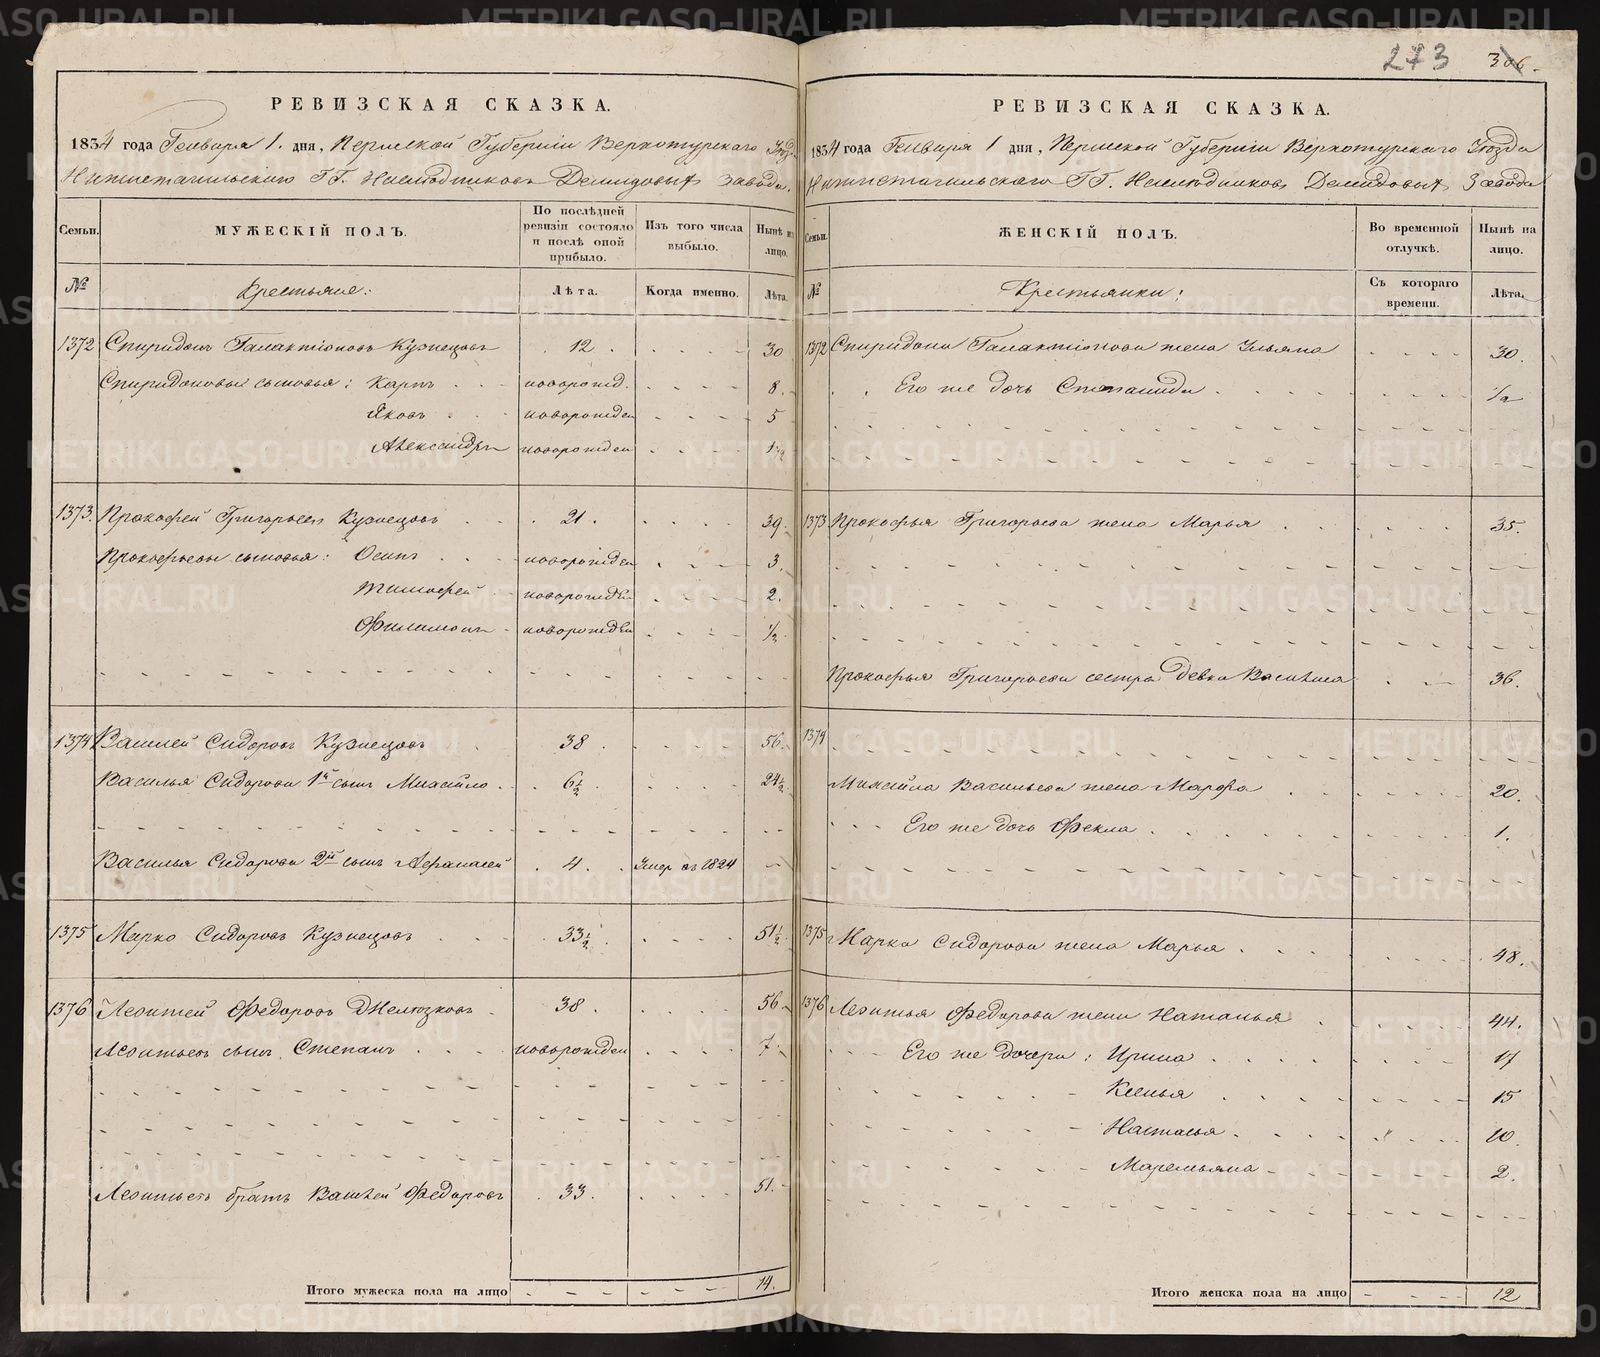 273 306.
РЕВИЗСКАЯ СКАЗКА.
1834 года Генваря 1. дня, Пермской Губерніи Верхотурскаго Уѣзд.
Нижнетагильскаго ГГ. Наслѣдниковъ Демидовыхъ завода.
Семьи.
МУЖЕСКІЙ ПОЛЪ.
По послѣдней ревизіи состояло и послѣ оной прибыло.
Изъ того числа выбыло.
Нынѣ на лицо.
№
Крестьяне:
Лѣта.
Когда именно.
Лѣта.
1372 Спиридонъ Галактіоновъ Кузнецовъ 12 30
Спиридоновы сыновья: Карпъ новорожд. 8.
Яковъ новорожден 5
Александръ новорожден 1 1/2
1373. Прокофей Григорьевъ Кузнецовъ 21. 39.
Прокофьевы сыновья: Осипъ новорожден 3.
Тимофей новорожден 2.
Филимонъ новорожден 1/2.
1374 Василей Сидоровъ Кузнецовъ 38 56.
Василья Сидорова 1й сынъ Михайло 6 1/2 24 1/2
Василья Сидорова 2й сынъ Афанасей 4. Умер въ 1824
1375 Марко Сидоровъ Кузнецовъ 33 1/2 51 1/2
1376 Леонтей Федоровъ 38. 56
Леонтьевъ сынъ Степанъ новорожден 7
Леонтьевъ братъ Василей Федоровъ 33. 51.
Итого мужеска пола на лицо 14.
РЕВИЗСКАЯ СКАЗКА.
1834 года Генваря 1 дня, Пермской Губерніи Верхотурскаго Уѣзда
Нижнетагильскаго ГГ. Наслѣдниковъ Демидовыхъ Завода
Семьи.
ЖЕНСКІЙ ПОЛЪ.
Во временной отлучкѣ.
Нынѣ на лицо.
№
Крестьянки:
Съ котораго времени.
Лѣта.
1372 Спиридона Галактіонова жена Ульяна 30.
Его же дочь Степанида 1/2
1373 Прокофья Григорьева жена Марья 35.
Прокофья Григорьева сестра девка Василиса 36.
1374
Михайла Васильева жена Марфа 20.
Его же дочь Фекла 1.
1375 Марка Сидорова жена Марья 48.
1376 Леонтья Федорова жена Наталья 44.
Его же дочери: Ирина 17
Ксенья 15
Настасья 10.
Маремьяна 2.
Итого женска пола на лицо 12
METRIKI.GASO-URAL.RU